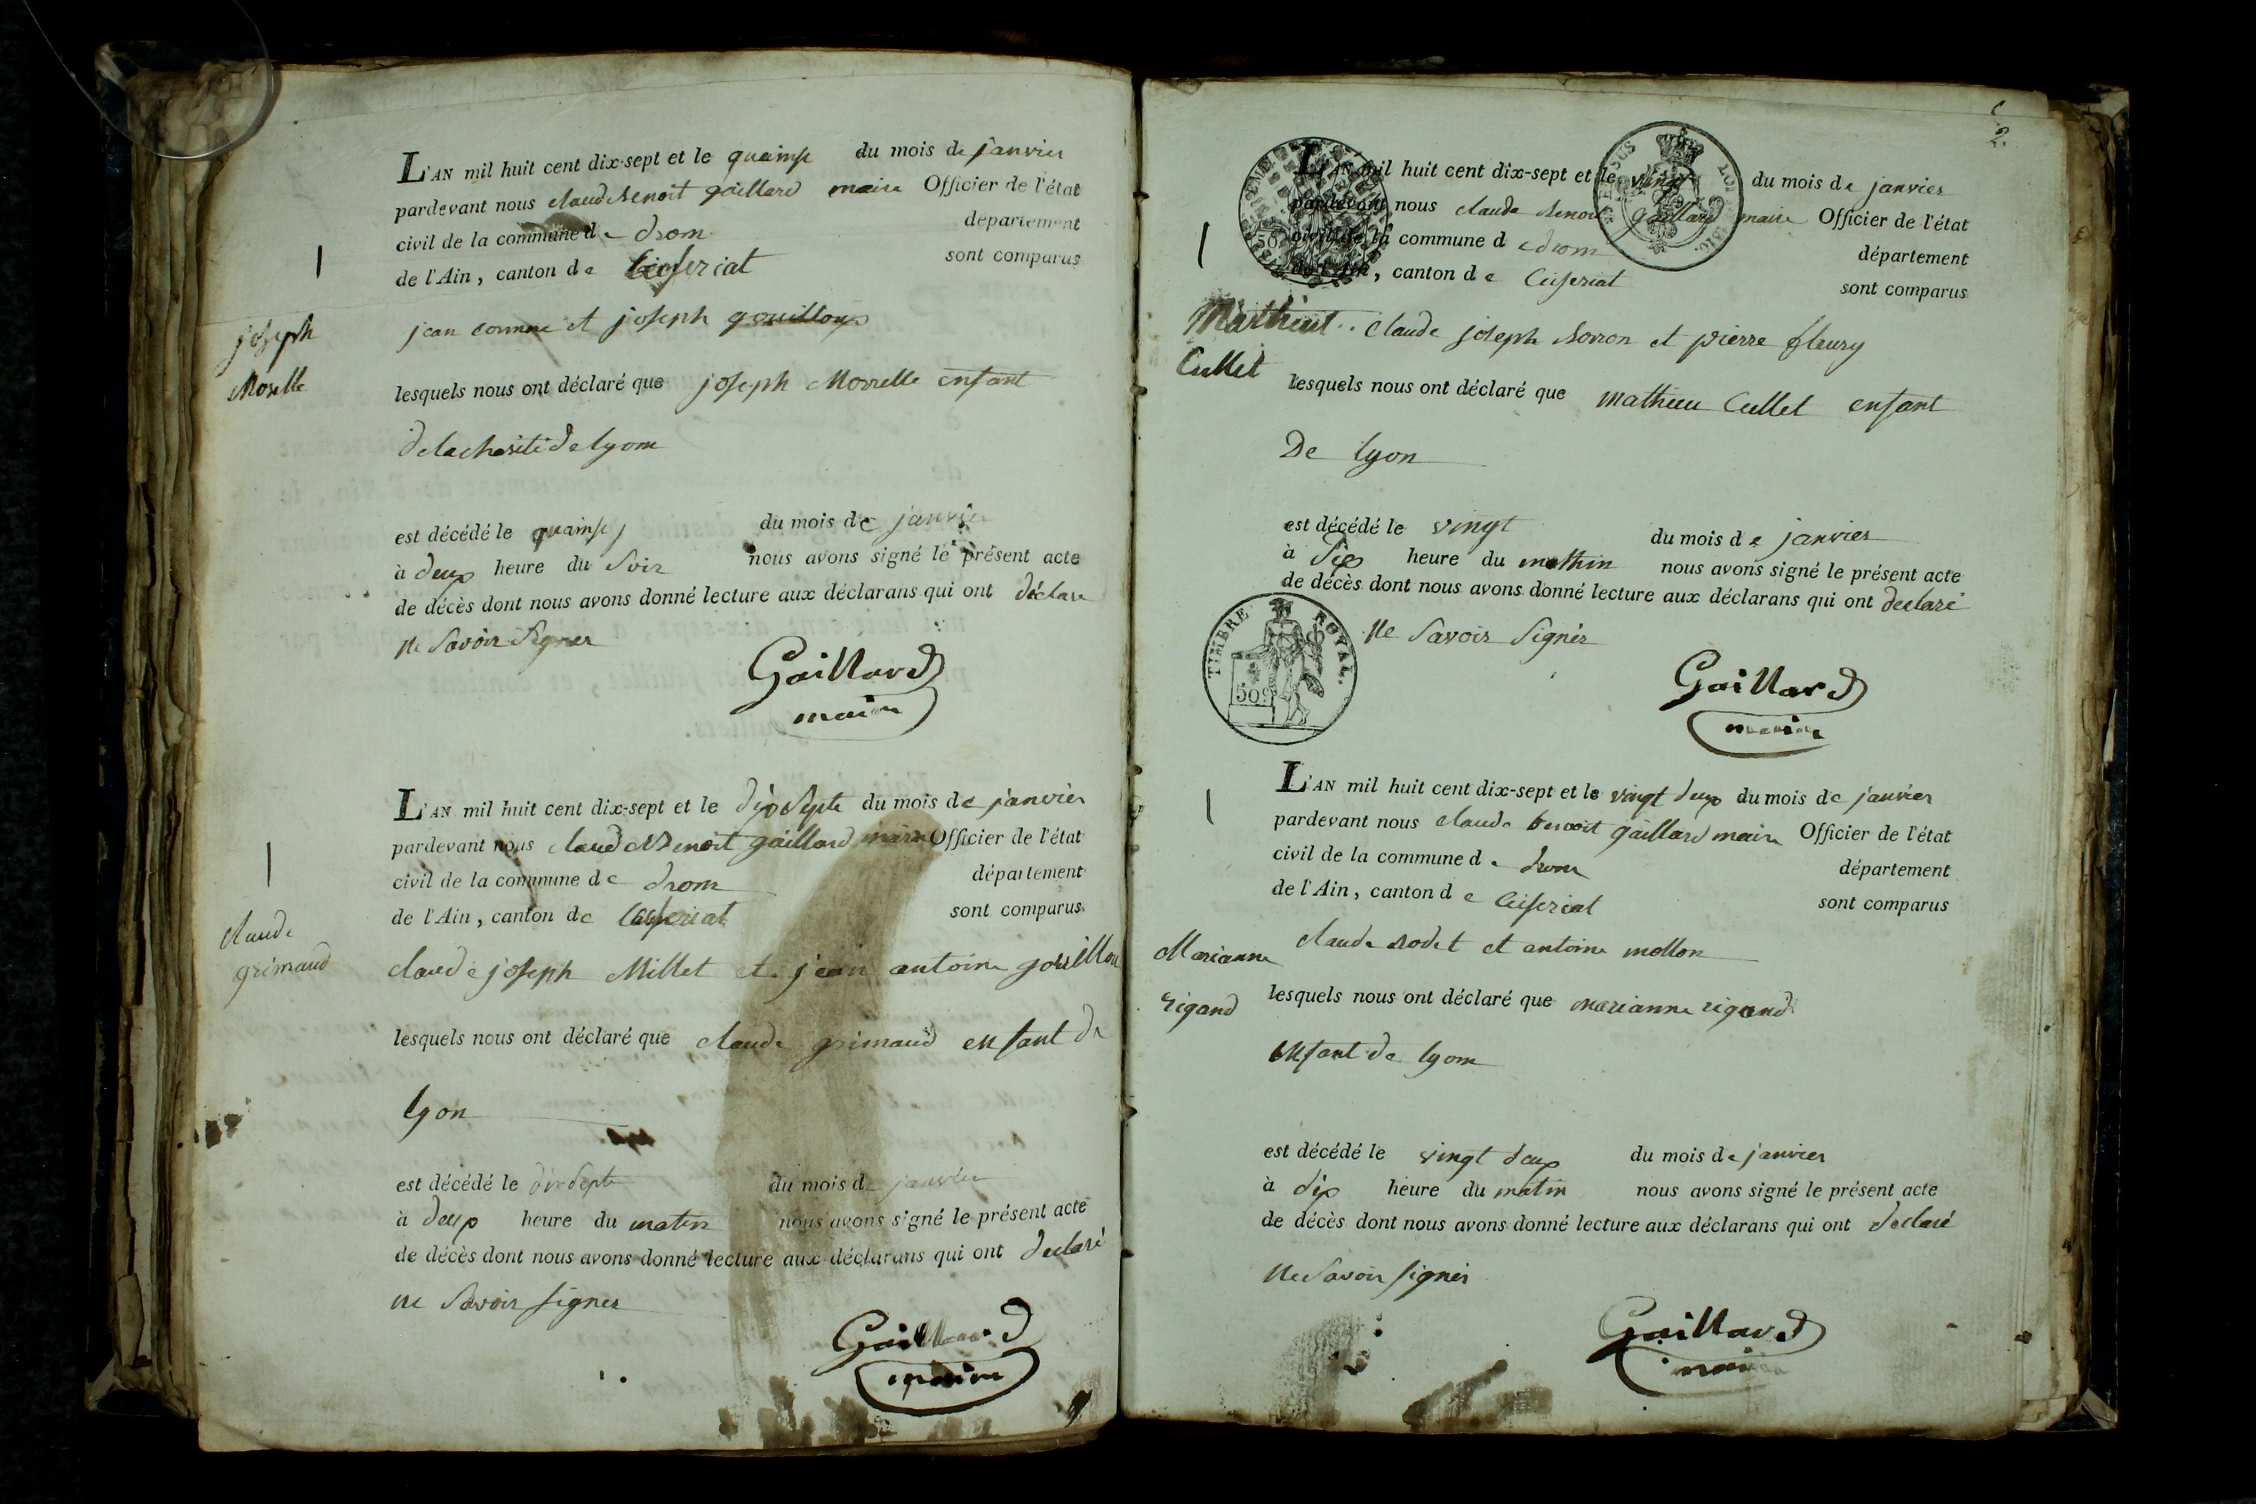 L'AN mil huit cent dix-sept et le quainse du mois de janvier
pardevant nous claude benoit gaillard maire Officier de l'état
civil de la commune de drom département
de l'Ain, canton de Ceiseriat sont comparus
joseph
Morelle
jean et joseph gouilloux
lesquels nous ont déclaré que joseph Morelle enfant
dela charité de lyom
est décédé le quainse du mois de janvier
à deux heure du soir nous avons signé le présent acte
de décès dont nous avons donné lecture aux déclarans qui ont déclare
ne savoir signer
Gaillard
maire
L'AN mil huit cent dix-sept et le dix septe du mois de janvier
pardevant nous claude Benoit gaillard maire Officier de l'état
civil de la commune de drom département
de l'Ain, canton de Ceiseriat sont comparus
claude
grimaud
claude joseph Millet et jean antoine gouillou
lesquels nous ont déclaré que claude grimaud enfant de
lyon
est décédé le dix septe du mois de janvier
à deux heure du matin nous avons signé le présent acte
de décès dont nous avons donné lecture aux déclarans qui ont declaré
ne savoir signer
Gaillard
maire
2
L'AN mil huit cent dix-sept et le vingt du mois de janvier
pardevant nous claude benoit gaillard maire Officier de l'état
civil de la commune de drom département
de l'Ain, canton de Ceiseriat sont comparus
Mathieu
Cullet
claude joseph et pierre fleury
lesquels nous ont déclaré que mathieu Cullet enfant
De lyon
est décédé le vingt du mois de janvier
à dix heure du mathin nous avons signé le présent acte
de décès dont nous avons donné lecture aux déclarans qui ont declaré
TIMBRE ROYAL.
50c
ne savoir signer
Gaillard
maire
L'AN mil huit cent dix-sept et le vingt deux du mois de janvier
pardevant nous claude benoit gaillard maire Officier de l'état
civil de la commune de drom département
de l'Ain, canton de Ceiseriat sont comparus
Marianne
rigaud
claude rodet et antoine mollon
lesquels nous ont déclaré que marianne rigaud
enfant de lyom
est décédé le vingt deux du mois de janvier
à dix heure du matin nous avons signé le présent acte
de décès dont nous avons donné lecture aux déclarans qui ont declaré
ne savoir signer
Gaillard
maire